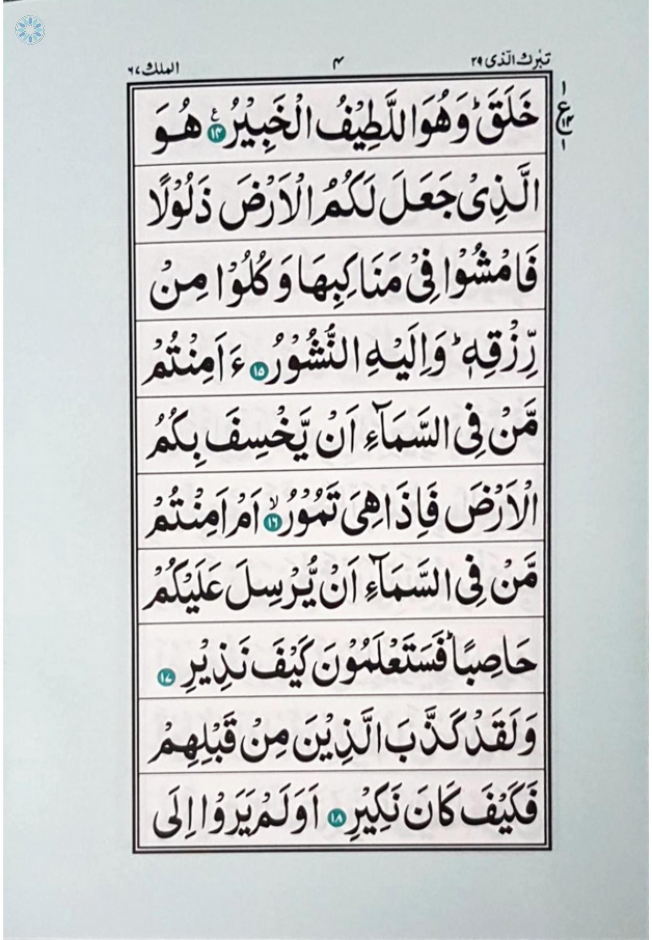 تبٰرك الّذی ٢٩
۴
الملك ٦٧
١
ع
١٤
١
خَلَقَ ؕ وَهُوَ اللَّطِيْفُ الْخَبِيْرُ ١٤ ع هُوَ
الَّذِیْ جَعَلَ لَكُمُ الْاَرْضَ ذَلُوْلًا
فَامْشُوْا فِیْ مَنَاكِبِهَا وَكُلُوْا مِنْ
رِّزْقِهٖ ؕ وَاِلَيْهِ النُّشُوْرُ ١٥ ءَاَمِنْتُمْ
مَّنْ فِی السَّمَآءِ اَنْ يَّخْسِفَ بِكُمُ
الْاَرْضَ فَاِذَا هِیَ تَمُوْرُ ١٦ ۙ اَمْ اَمِنْتُمْ
مَّنْ فِی السَّمَآءِ اَنْ يُّرْسِلَ عَلَيْكُمْ
حَاصِبًا ؕ فَسَتَعْلَمُوْنَ كَيْفَ نَذِيْرِ ١٧
وَلَقَدْ كَذَّبَ الَّذِيْنَ مِنْ قَبْلِهِمْ
فَكَيْفَ كَانَ نَكِيْرِ ١٨ اَوَلَمْ يَرَوْا اِلَی